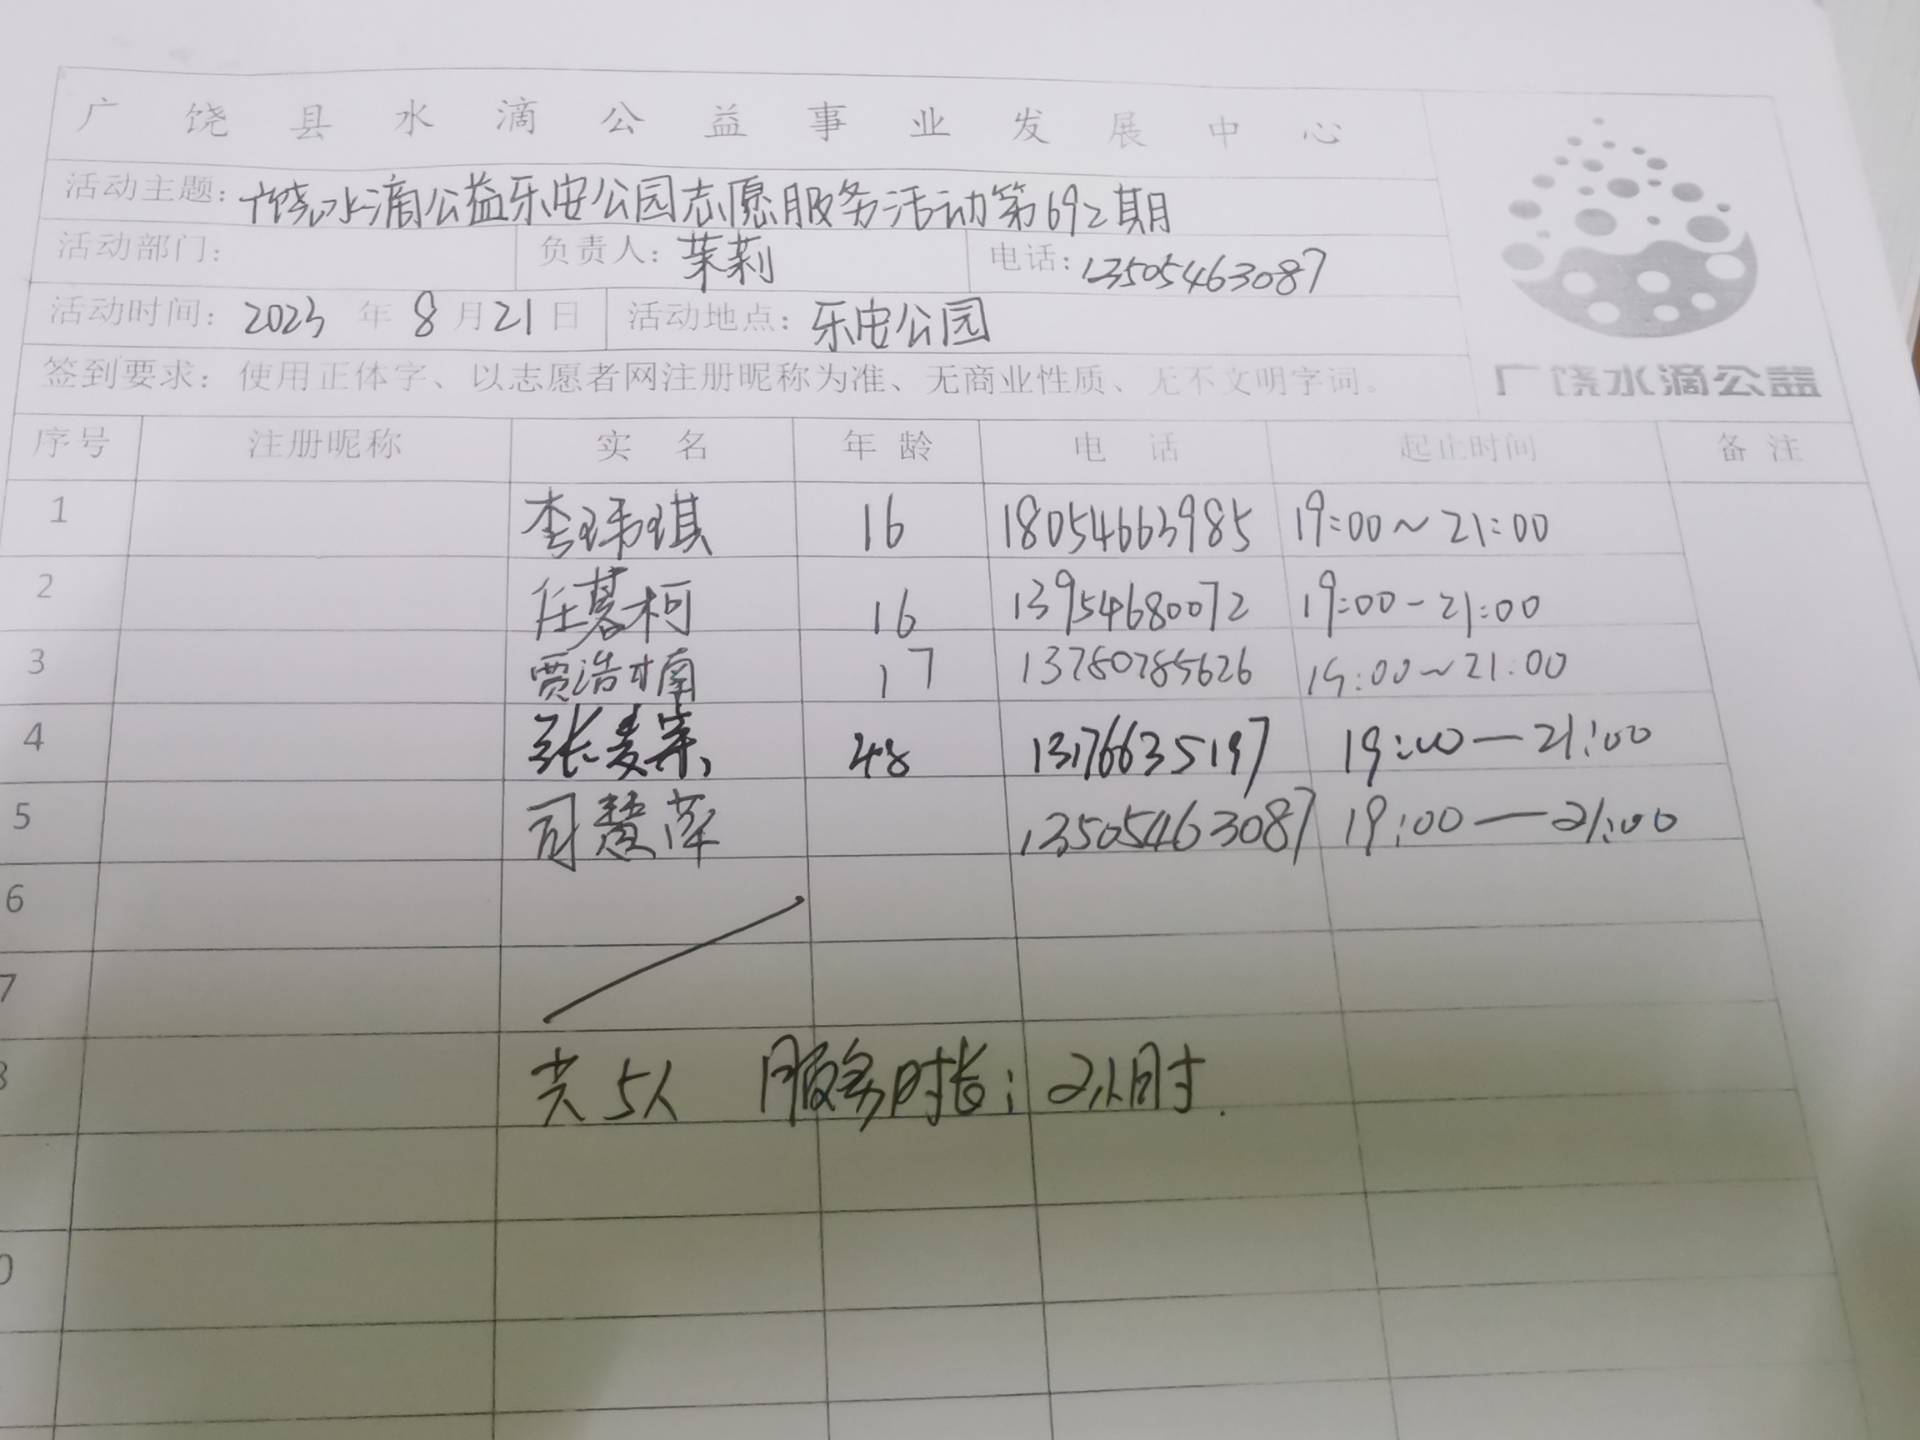 广饶县水滴公益事业发展中心
活动主题：广饶水滴公益乐安公园志愿服务活动第692期
活动部门： 负责人：茉莉 电话：13505463087
活动时间：2023年8月21日 活动地点：乐安公园
签到要求：使用正体字、以志愿者网注册昵称为准、无商业性质、无不文明字词。
广饶水滴公益
序号 注册昵称 实名 年龄 电话 起止时间 备注
1 李玮琪 16 18054663985 19:00~21:00
2 任慕柯 16 13954680072 19:00-21:00
3 贾浩楠 17 13780785626 19:00~21:00
4 张 48 13176635197 19:00—21:00
5 司慧萍 13505463087 19:00—21:00
6
7
8 共5人 服务时长：2小时.
0